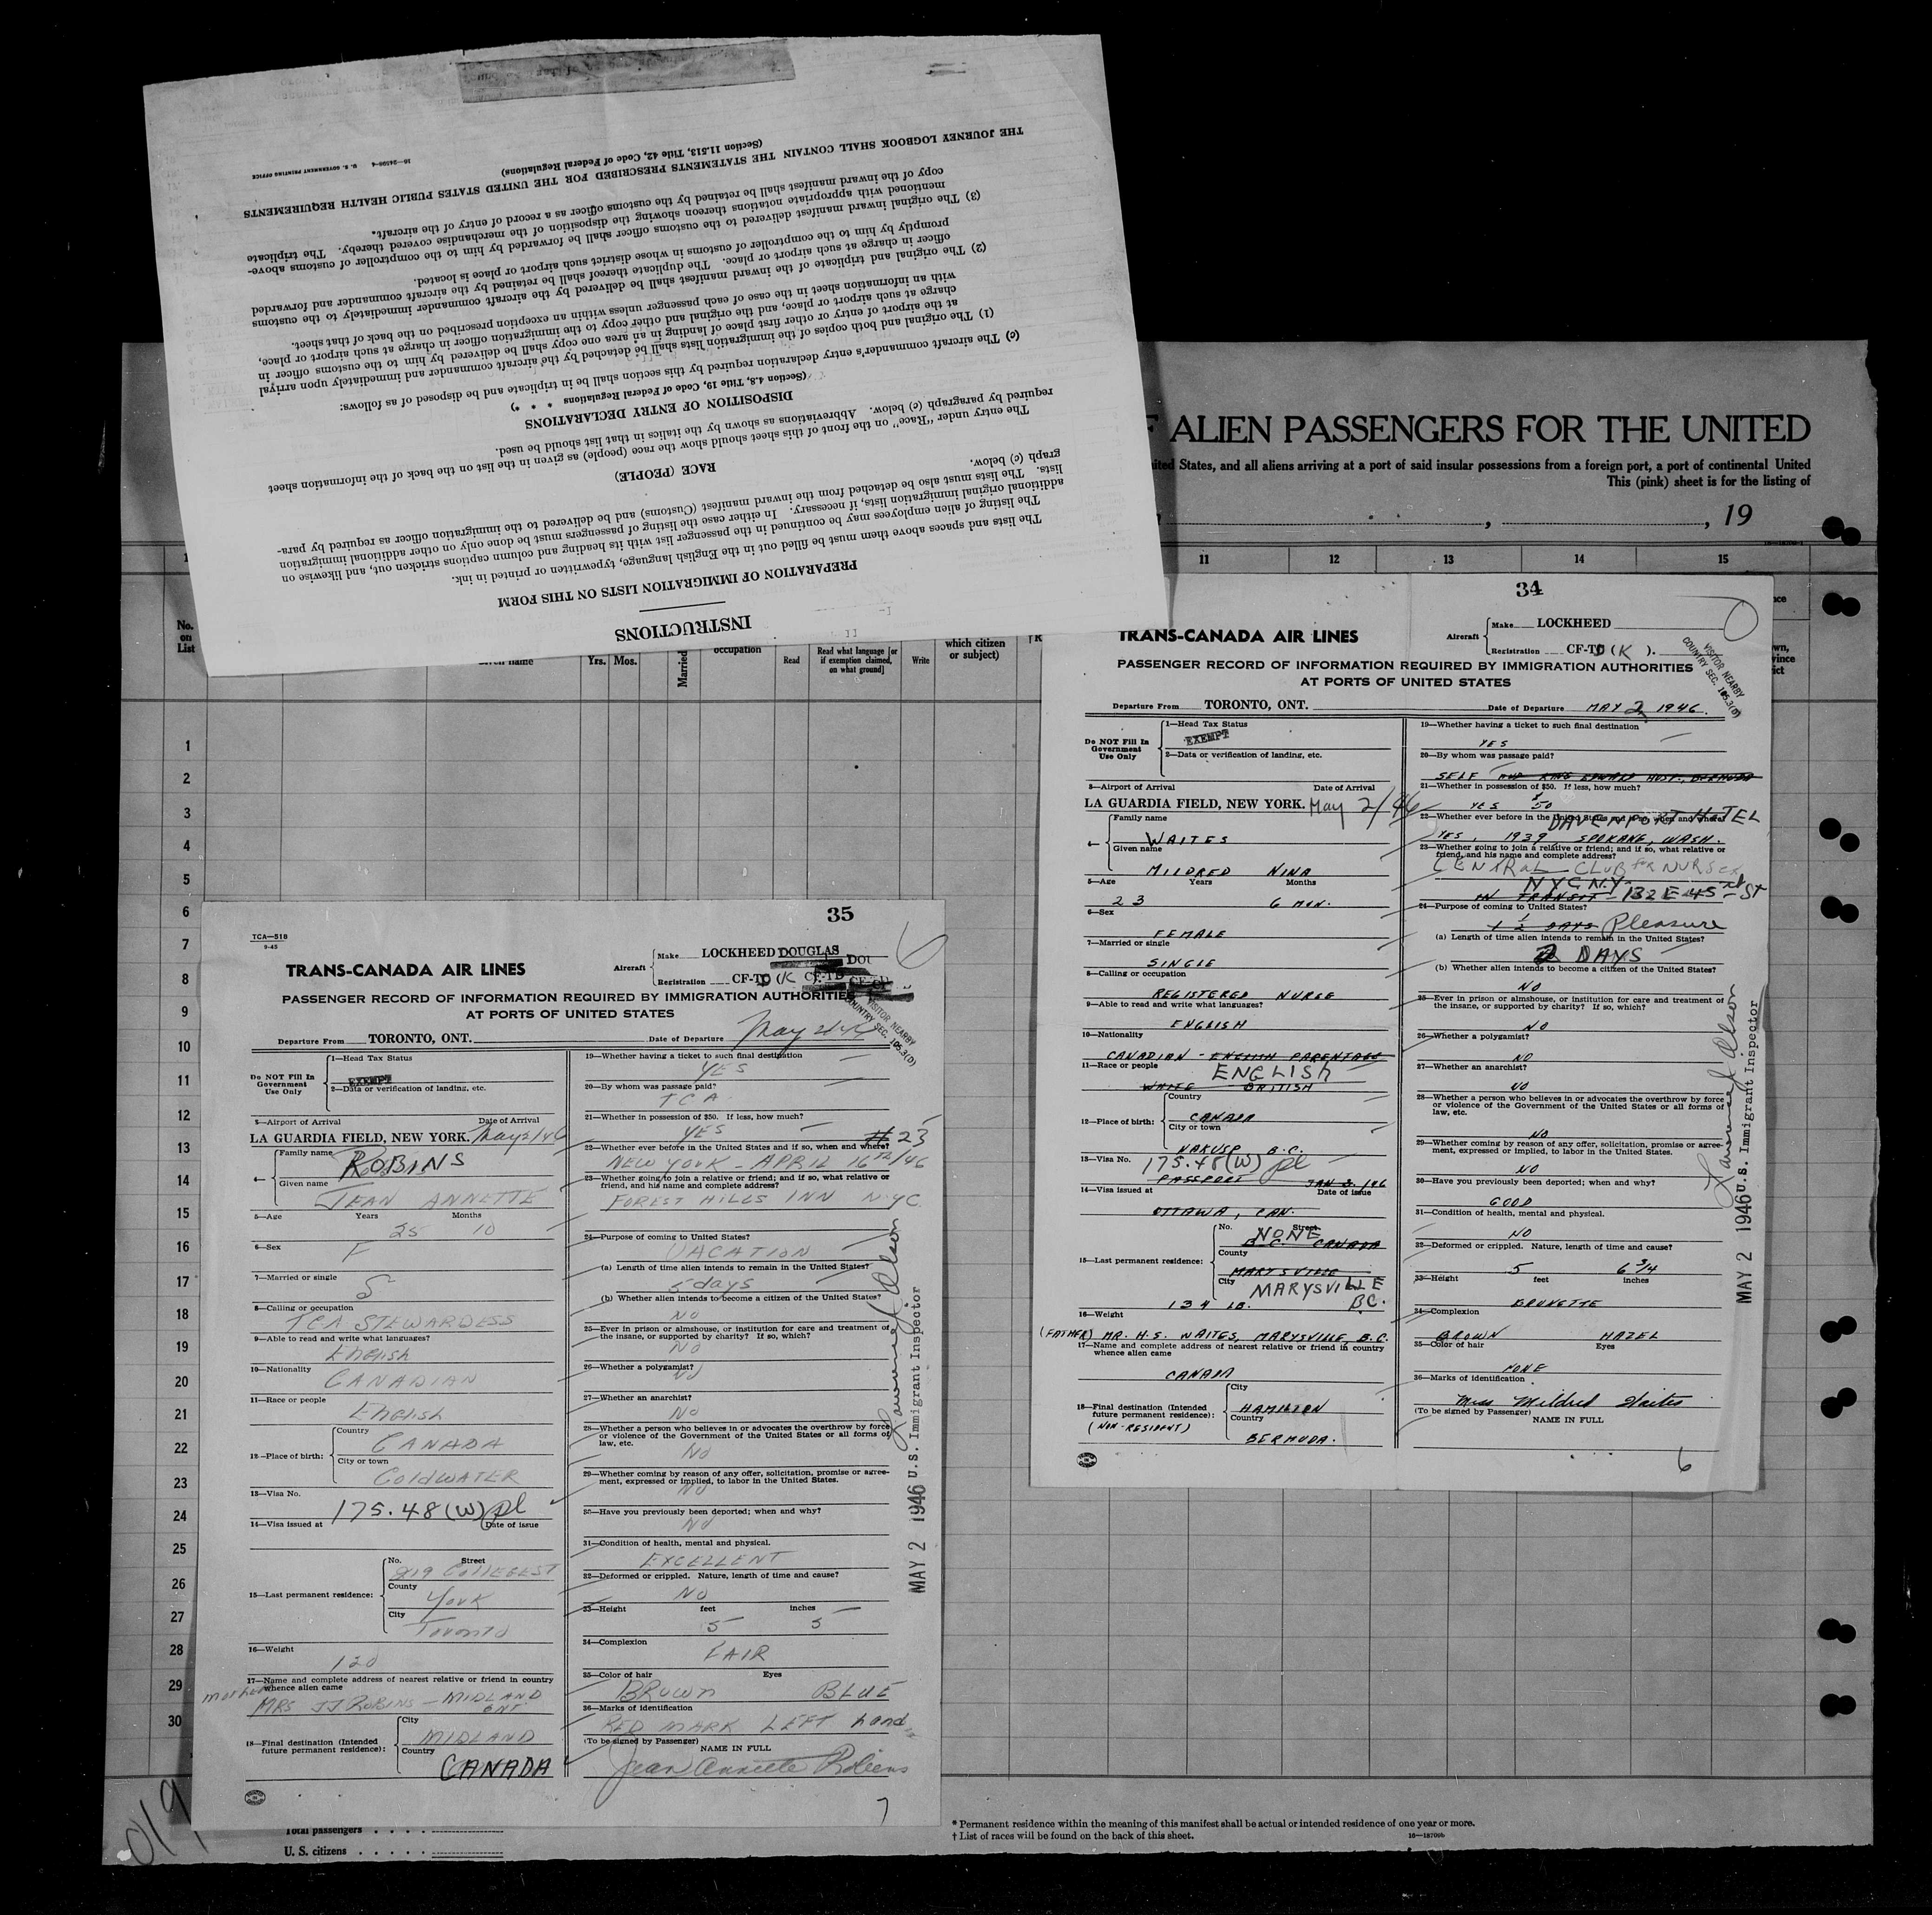 INSTRUCTIONS
PREPARATION OF IMMIGRATION LISTS ON THIS FORM
The lists and spaces above them must be filled out in the English language, typewritten or printed in ink.
The listing of alien employees may be continued in the passenger list with its heading and column captions stricken out, and likewise on
additional original immigration lists, if necessary. In either case the listing of passengers must be done only on other additional immigration
lists. The lists must also be detached from the inward manifest (Customs) and be delivered to the immigration officer as required by para-
graph (c) below.
RACE (PEOPLE)
The entry under "Race" on the front of this sheet should show the race (people) as given in the list on the back of the information sheet
required by paragraph (c) below. Abbreviations as shown by the italics in that list should be used.
DISPOSITION OF ENTRY DECLARATIONS
(Section 4.8, Title 19, Code of Federal Regulations * * *)
(c) The aircraft commander's entry declaration required by this section shall be in triplicate and be disposed of as follows:
(1) The original and both copies of the immigration lists shall be detached by the aircraft commander and immediately upon arrival
at the airport of entry or other first place of landing in an area one copy shall be delivered by him to the customs officer in
charge at such airport or place, and the original and other copy to the immigration officer in charge at such airport or place,
with an information sheet in the case of each passenger unless within an exception prescribed on the back of that sheet.
(2) The original and triplicate of the inward manifest shall be delivered by the aircraft commander immediately to the customs
officer in charge at such airport or place. The duplicate thereof shall be retained by the aircraft commander and forwarded
promptly by him to the comptroller of customs in whose district such airport or place is located.
(3) The original inward manifest delivered to the customs officer shall be forwarded by him to the comptroller of customs above-
mentioned with appropriate notations thereon showing the disposition of the merchandise covered thereby. The triplicate
copy of the inward manifest shall be retained by the customs officer as a record of entry of the aircraft.
THE JOURNEY LOGBOOK SHALL CONTAIN THE STATEMENTS PRESCRIBED FOR THE UNITED STATES PUBLIC HEALTH REQUIREMENTS
(Section 11.513, Title 42, Code of Federal Regulations)
16—24590-4 U. S. GOVERNMENT PRINTING OFFICE
F ALIEN PASSENGERS FOR THE UNITED
ited States, and all aliens arriving at a port of said insular possessions from a foreign port, a port of continental United
This (pink) sheet is for the listing of
, , 19
11 12 13 14 15
No. on List
Given name
Yrs. Mos.
Married
occupation
Read
Read what language [or if exemption claimed, on what ground]
Write
which citizen or subject)
1
2
3
4
5
6
7
8
9
10
11
12
13
14
15
16
17
18
19
20
21
22
23
24
25
26
27
28
29
30
34
TRANS-CANADA AIR LINES
Aircraft
Make LOCKHEED
Registration CF-TD (K ).
VISITOR NEARBY
COUNTRY SEC. 105.3(D)
PASSENGER RECORD OF INFORMATION REQUIRED BY IMMIGRATION AUTHORITIES
AT PORTS OF UNITED STATES
Departure From TORONTO, ONT. Date of Departure MAY 2, 1946.
Do NOT Fill In Government Use Only
1—Head Tax Status
EXEMPT
2—Data or verification of landing, etc.
3—Airport of Arrival Date of Arrival
LA GUARDIA FIELD, NEW YORK. May 2/46
4— Family name
WAITES
Given name
MILDRED NINA
5—Age Years Months
23 6 MON.
6—Sex
FEMALE
7—Married or single
SINGLE
8—Calling or occupation
REGISTERED NURSE
9—Able to read and write what languages?
ENGLISH
10—Nationality
CANADIAN - ENGLISH PARENTAGE
11—Race or people
ENGLISH
WHITE BRITISH
12—Place of birth:
Country
CANADA
City or town
NAKUSP B.C.
13—Visa No. 175.48(W) pl
PASSPORT
14—Visa issued at Date of issue
OTTAWA, CAN.
15—Last permanent residence:
No. Street
NONE
B.C. CANADA
County
MARYSVILLE
City MARYSVILLE
B.C.
134 LB.
16—Weight
(FATHER) MR. H.S. WAITES, MARYSVILLE, B.C.
17—Name and complete address of nearest relative or friend in country
whence alien came
CANADA
18—Final destination (Intended future permanent residence):
(NON-RESIDENT)
City
HAMILTON
Country
BERMUDA.
19—Whether having a ticket to such final destination
YES
20—By whom was passage paid?
SELF AND KING EDWARD HOSP., BERMUDA
21—Whether in possession of $50. If less, how much?
YES $50
22—Whether ever before in the United States and if so, when and where?
DAVENPORT HOTEL
YES, 1939, SPOKANE, WASH.
23—Whether going to join a relative or friend; and if so, what relative or
friend, and his name and complete address?
CENTRAL CLUB for NURSES
NYC N.Y.
IN TRANSIT - 132 E 45th ST
24—Purpose of coming to United States?
1½ DAYS Pleasure
(a) Length of time alien intends to remain in the United States?
2 DAYS
(b) Whether alien intends to become a citizen of the United States?
NO
25—Ever in prison or almshouse, or institution for care and treatment of
the insane, or supported by charity? If so, which?
NO
26—Whether a polygamist?
NO
27—Whether an anarchist?
NO
28—Whether a person who believes in or advocates the overthrow by force
or violence of the Government of the United States or all forms of
law, etc.
NO
29—Whether coming by reason of any offer, solicitation, promise or agree-
ment, expressed or implied, to labor in the United States.
NO
30—Have you previously been deported; when and why?
GOOD
31—Condition of health, mental and physical.
NO
32—Deformed or crippled. Nature, length of time and cause?
5 6 3/4
33—Height feet inches
BRUNETTE
34—Complexion
BROWN HAZEL
35—Color of hair Eyes
NONE
36—Marks of identification
Miss Mildred Waites
(To be signed by Passenger) NAME IN FULL
6
MAY 2 1946 U.S. Immigrant Inspector
35
TCA—518
9-45
TRANS-CANADA AIR LINES
Aircraft
Make LOCKHEED DOUGLAS DOU
Registration CF-TD (K CF-TD CF-TD
VISITOR NEARBY
COUNTRY SEC. 105.3(D)
PASSENGER RECORD OF INFORMATION REQUIRED BY IMMIGRATION AUTHORITIES
AT PORTS OF UNITED STATES
Departure From TORONTO, ONT. Date of Departure May 2/46
Do NOT Fill In Government Use Only
1—Head Tax Status
EXEMPT
2—Data or verification of landing, etc.
3—Airport of Arrival Date of Arrival
LA GUARDIA FIELD, NEW YORK. May 2/46
4— Family name ROBINS
Given name
JEAN ANNETTE
5—Age Years Months
25 10
6—Sex
F
7—Married or single
S
8—Calling or occupation
TCA STEWARDESS
9—Able to read and write what languages?
English
10—Nationality
CANADIAN
11—Race or people
English
12—Place of birth:
Country
CANADA
City or town
COLDWATER
13—Visa No.
175.48(W) pl
14—Visa issued at Date of issue
15—Last permanent residence:
No. Street
819 COLLEGE ST
County
York
City
Toronto
16—Weight
120
17—Name and complete address of nearest relative or friend in country
whence alien came
mother
MRS JJ ROBINS — MIDLAND
ONT
18—Final destination (Intended future permanent residence):
City
MIDLAND
Country
CANADA
19—Whether having a ticket to such final destination
YES
20—By whom was passage paid?
TCA
21—Whether in possession of $50. If less, how much?
YES
22—Whether ever before in the United States and if so, when and where?
23
NEW YORK - APRIL 16TH/46
23—Whether going to join a relative or friend; and if so, what relative or
friend, and his name and complete address?
FOREST HILLS INN NYC
24—Purpose of coming to United States?
VACATION
(a) Length of time alien intends to remain in the United States?
5 days
(b) Whether alien intends to become a citizen of the United States?
NO
25—Ever in prison or almshouse, or institution for care and treatment of
the insane, or supported by charity? If so, which?
NO
26—Whether a polygamist?
NO
27—Whether an anarchist?
NO
28—Whether a person who believes in or advocates the overthrow by force
or violence of the Government of the United States or all forms of
law, etc.
NO
29—Whether coming by reason of any offer, solicitation, promise or agree-
ment, expressed or implied, to labor in the United States.
NO
30—Have you previously been deported; when and why?
NO
31—Condition of health, mental and physical.
EXCELLENT
32—Deformed or crippled. Nature, length of time and cause?
NO
33—Height feet inches
5 5
34—Complexion
FAIR
35—Color of hair Eyes
BROWN BLUE
36—Marks of identification
RED MARK LEFT hand
(To be signed by Passenger)
NAME IN FULL
Jean Annette Robins
7
MAY 2 1946 U.S. Immigrant Inspector
Total passengers . . . .
U. S. citizens . . . . .
* Permanent residence within the meaning of this manifest shall be actual or intended residence of one year or more.
† List of races will be found on the back of this sheet.
16—18700b